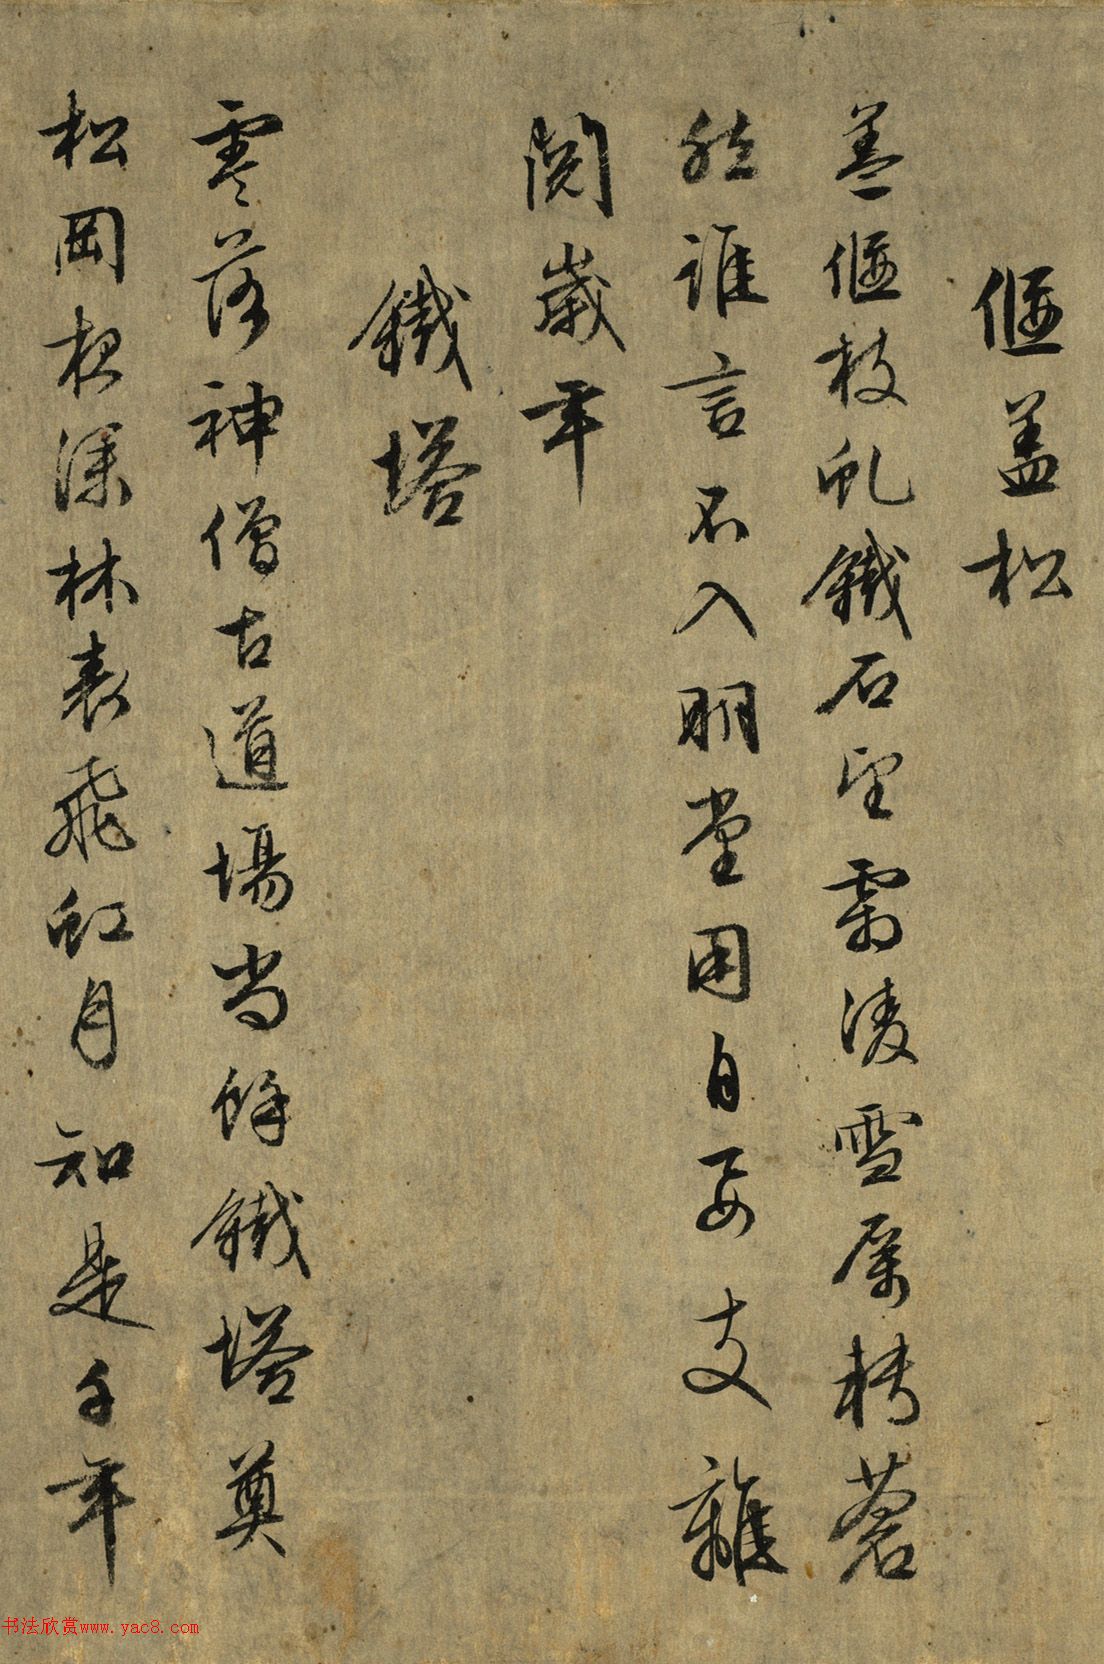 偃盖松
盖偃枝虬鐵石堅霜凌雪厲轉蒼
然誰言不入明堂用自要支離
閱歲年
鐵塔
零落神僧古道場尚餘鐵塔奠
松岡根深林表飛虹月知是千年
书法欣赏www.yac8.com